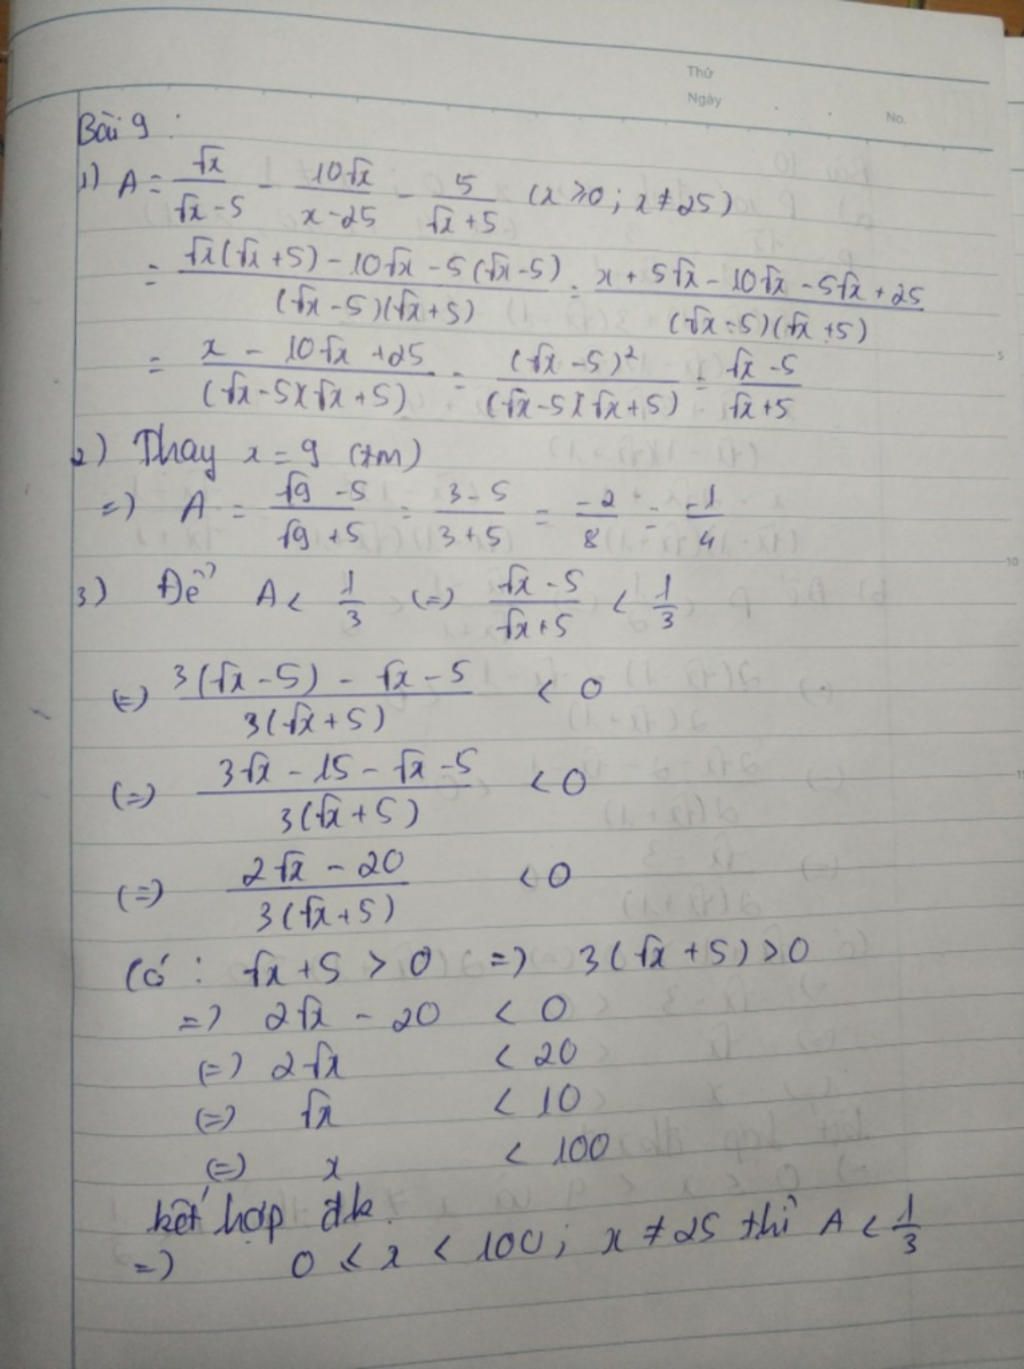 Thứ
Ngày
No.
Bài 9:
1) A = √x/(√x-5) - 10√x/(x-25) - 5/(√x+5) (x ≥ 0; x ≠ 25)
= (√x(√x+5) - 10√x - 5(√x-5))/((√x-5)(√x+5)) = (x + 5√x - 10√x - 5√x + 25)/((√x-5)(√x+5))
= (x - 10√x + 25)/((√x-5)(√x+5)) = (√x-5)²/((√x-5)(√x+5)) = (√x-5)/(√x+5)
2) Thay x = 9 (tm)
=) A = (√9-5)/(√9+5) = (3-5)/(3+5) = -2/8 = -1/4
3) Để A < 1/3 (=) (√x-5)/(√x+5) < 1/3
(=) (3(√x-5) - √x - 5)/(3(√x+5)) < 0
(=) (3√x - 15 - √x - 5)/(3(√x+5)) < 0
(=) (2√x - 20)/(3(√x+5)) < 0
Có: √x + 5 > 0 =) 3(√x+5) > 0
=) 2√x - 20 < 0
(=) 2√x < 20
(=) √x < 10
(=) x < 100
kết hợp đk
=) 0 ≤ x < 100; x ≠ 25 thì A < 1/3
5
10